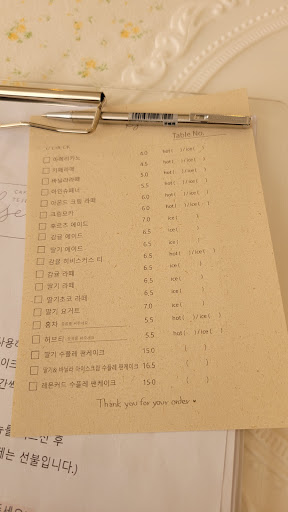 Table No.
아메리카노 4.0 hot( )/ice( )
카페라떼 4.5 hot( )/ice( )
바닐라라떼 5.0 hot( )/ice( )
아인슈페너 5.5 hot( )/ice( )
아몬드 크림 라떼 6.0
크림모카
후르츠 에이드 7.0 ice( )
감귤 에이드 6.5 ice( )
딸기 에이드 6.5 ice( )
감귤 히비스커스 티 6.5 hot( )/ice( )
감귤 라떼 6.5 ice( )
딸기 라떼 6.5 ice( )
딸기초코 라떼 ice( )
딸기 요거트 7.0 ice( )
홍차 5.5 hot( )/ice( )
허브티 5.5 hot( )/ice( )
딸기 수플레 팬케이크 15.0 ( )
딸기& 바닐라 아이스크림 수플레 팬케이크 16.5 ( )
레몬커드 수플레 팬케이크 15.0 ( )
Thank you for your order ♥
후
제는 선불입니다.)